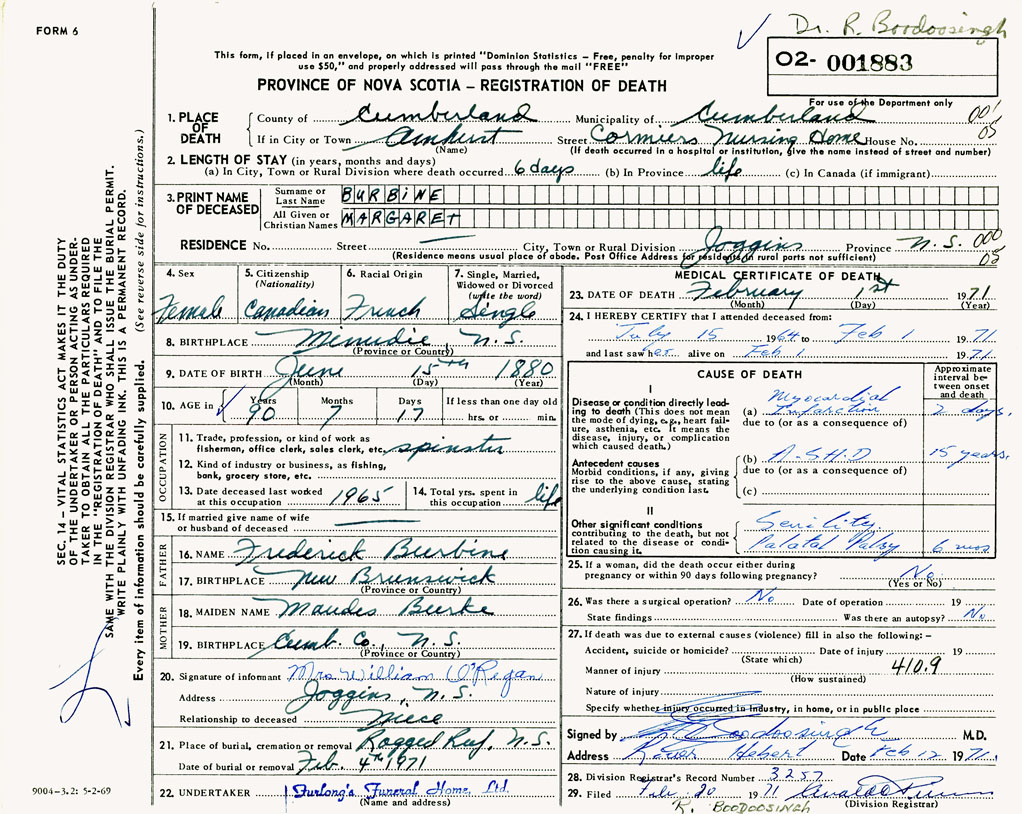 FORM 6
Dr. R. Boodoosingh
This form, if placed in an envelope, on which is printed "Dominion Statistics – Free, penalty for improper
use $50," and properly addressed will pass through the mail "FREE"
02- 001883
PROVINCE OF NOVA SCOTIA – REGISTRATION OF DEATH
For use of the Department only
1. PLACE OF DEATH
County of Cumberland Municipality of Cumberland 001
If in City or Town Amherst Street Cormiers Nursing Home House No. 05
(Name) (If death occurred in a hospital or institution, give the name instead of street and number)
2. LENGTH OF STAY (in years, months and days)
(a) In City, Town or Rural Division where death occurred 6 days (b) In Province life (c) In Canada (if immigrant)
3. PRINT NAME OF DECEASED
Surname or Last Name BURBINE
All Given or Christian Names MARGARET
RESIDENCE No. Street — City, Town or Rural Division Joggins Province N.S. 000
(Residence means usual place of abode. Post Office Address for residents in rural parts not sufficient) 05
4. Sex Female
5. Citizenship (Nationality) Canadian
6. Racial Origin French
7. Single, Married, Widowed or Divorced (write the word) Single
8. BIRTHPLACE Minudie, N.S.
(Province or Country)
9. DATE OF BIRTH June 15TH 1880
(Month) (Day) (Year)
10. AGE in Years 90 Months 7 Days 17 If less than one day old hrs. or min.
OCCUPATION
11. Trade, profession, or kind of work as
fisherman, office clerk, sales clerk, etc. spinster
12. Kind of industry or business, as fishing,
bank, grocery store, etc.
13. Date deceased last worked at this occupation 1965
14. Total yrs. spent in this occupation life
15. If married give name of wife
or husband of deceased —
FATHER
16. NAME Frederick Burbine
17. BIRTHPLACE New Brunswick
(Province or Country)
MOTHER
18. MAIDEN NAME Maudes Burke
19. BIRTHPLACE Cumb. Co., N.S.
(Province or Country)
20. Signature of informant Mrs William O'Regan
Address Joggins, N.S.
Relationship to deceased Niece
21. Place of burial, cremation or removal Ragged Reef, N.S.
Date of burial or removal Feb. 4th 1971
22. UNDERTAKER Furlong's Funeral Home Ltd.
(Name and address)
MEDICAL CERTIFICATE OF DEATH
23. DATE OF DEATH February 1st 1971
(Month) (Day) (Year)
24. I HEREBY CERTIFY that I attended deceased from:
July 15 1964 to Feb 1 1971
and last saw her alive on Feb 1 1971
CAUSE OF DEATH
Approximate interval between onset and death
I
Disease or condition directly leading to death (This does not mean the mode of dying, e.g., heart failure, asthenia, etc. It means the disease, injury, or complication which caused death.)
(a) Myocardial Infarction 2 days.
due to (or as a consequence of)
Antecedent causes
Morbid conditions, if any, giving rise to the above cause, stating the underlying condition last.
(b) A.S.H.D 15 years.
due to (or as a consequence of)
(c)
II
Other significant conditions
contributing to the death, but not related to the disease or condition causing it.
Senility
Palatal Palsy 6 mos
25. If a woman, did the death occur either during
pregnancy or within 90 days following pregnancy? No
(Yes or No)
26. Was there a surgical operation? No Date of operation 19
State findings Was there an autopsy? No
27. If death was due to external causes (violence) fill in also the following: –
Accident, suicide or homicide? Date of injury 19
(State which)
Manner of injury 410.9
(How sustained)
Nature of injury
Specify whether injury occurred in industry, in home, or in public place
Signed by Boodoosingh M.D.
Address River Hebert Date Feb 12 1971
28. Division Registrar's Record Number 3257
29. Filed Feb. 20 1971
(Division Registrar)
R. BOODOOSINGH
SEC. 14 – VITAL STATISTICS ACT MAKES IT THE DUTY
OF THE UNDERTAKER OR PERSON ACTING AS UNDER-
TAKER TO OBTAIN ALL THE PARTICULARS REQUIRED
IN THE "REGISTRATION OF DEATH" AND TO FILE THE
SAME WITH THE DIVISION REGISTRAR WHO SHALL ISSUE THE BURIAL PERMIT.
WRITE PLAINLY WITH UNFADING INK. THIS IS A PERMANENT RECORD.
Every item of information should be carefully supplied. (See reverse side for instructions.)
9004-3.2: 5-2-69